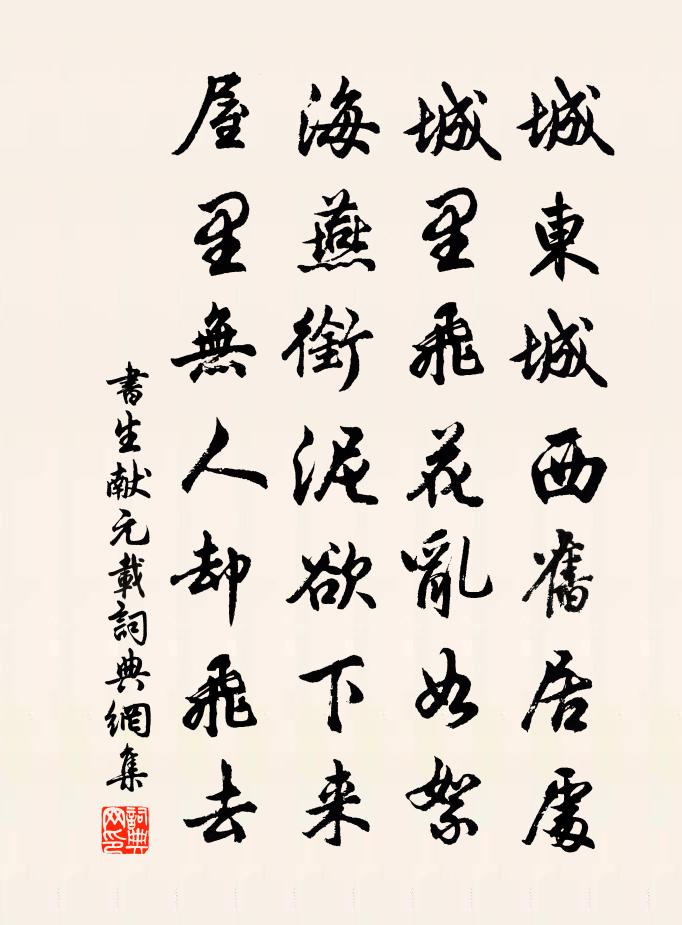 城東城西舊居處
城里飛花亂如絮
海燕銜泥欲下来
屋里無人却飛去
書生献元載詞典網集
詞典網印